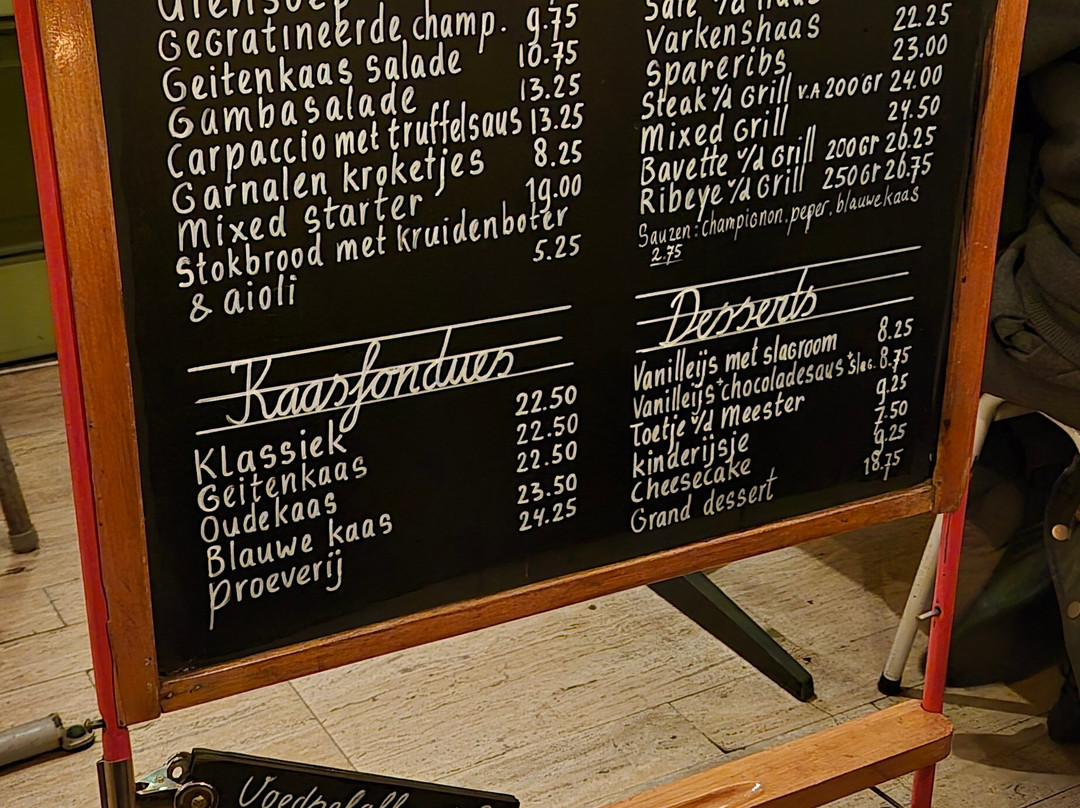 Uiensoep
Gegratineerde champ. 9.75
Geitenkaas salade 10.75
Gambasalade 13.25
Carpaccio met truffelsaus 13.25
Garnalen kroketjes 8.25
Mixed starter 19.00
Stokbrood met kruidenboter
& aioli 5.25
Kaasfondues
Klassiek 22.50
Geitenkaas 22.50
Oudekaas 22.50
Blauwe kaas 23.50
proeverij 24.25
Varkenshaas 22.25
Spareribs 23.00
Steak v/d Grill v.A 200gr 24.00
Mixed Grill 24.50
Bavette v/d Grill 200Gr 26.25
Ribeye v/d Grill 250Gr 26.75
Sauzen: champignon, peper, blauwe kaas
2.75
Desserts
Vanilleijs met slagroom 8.25
Vanilleijs + chocoladesaus + slag. 8.75
Toetje v/d Meester 9.25
kinderijsje 7.50
Cheesecake 9.25
Grand dessert 18.75